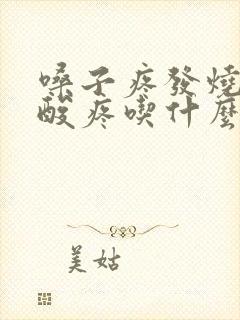 嗓子疼發燒
酸疼喫什麼
美姑